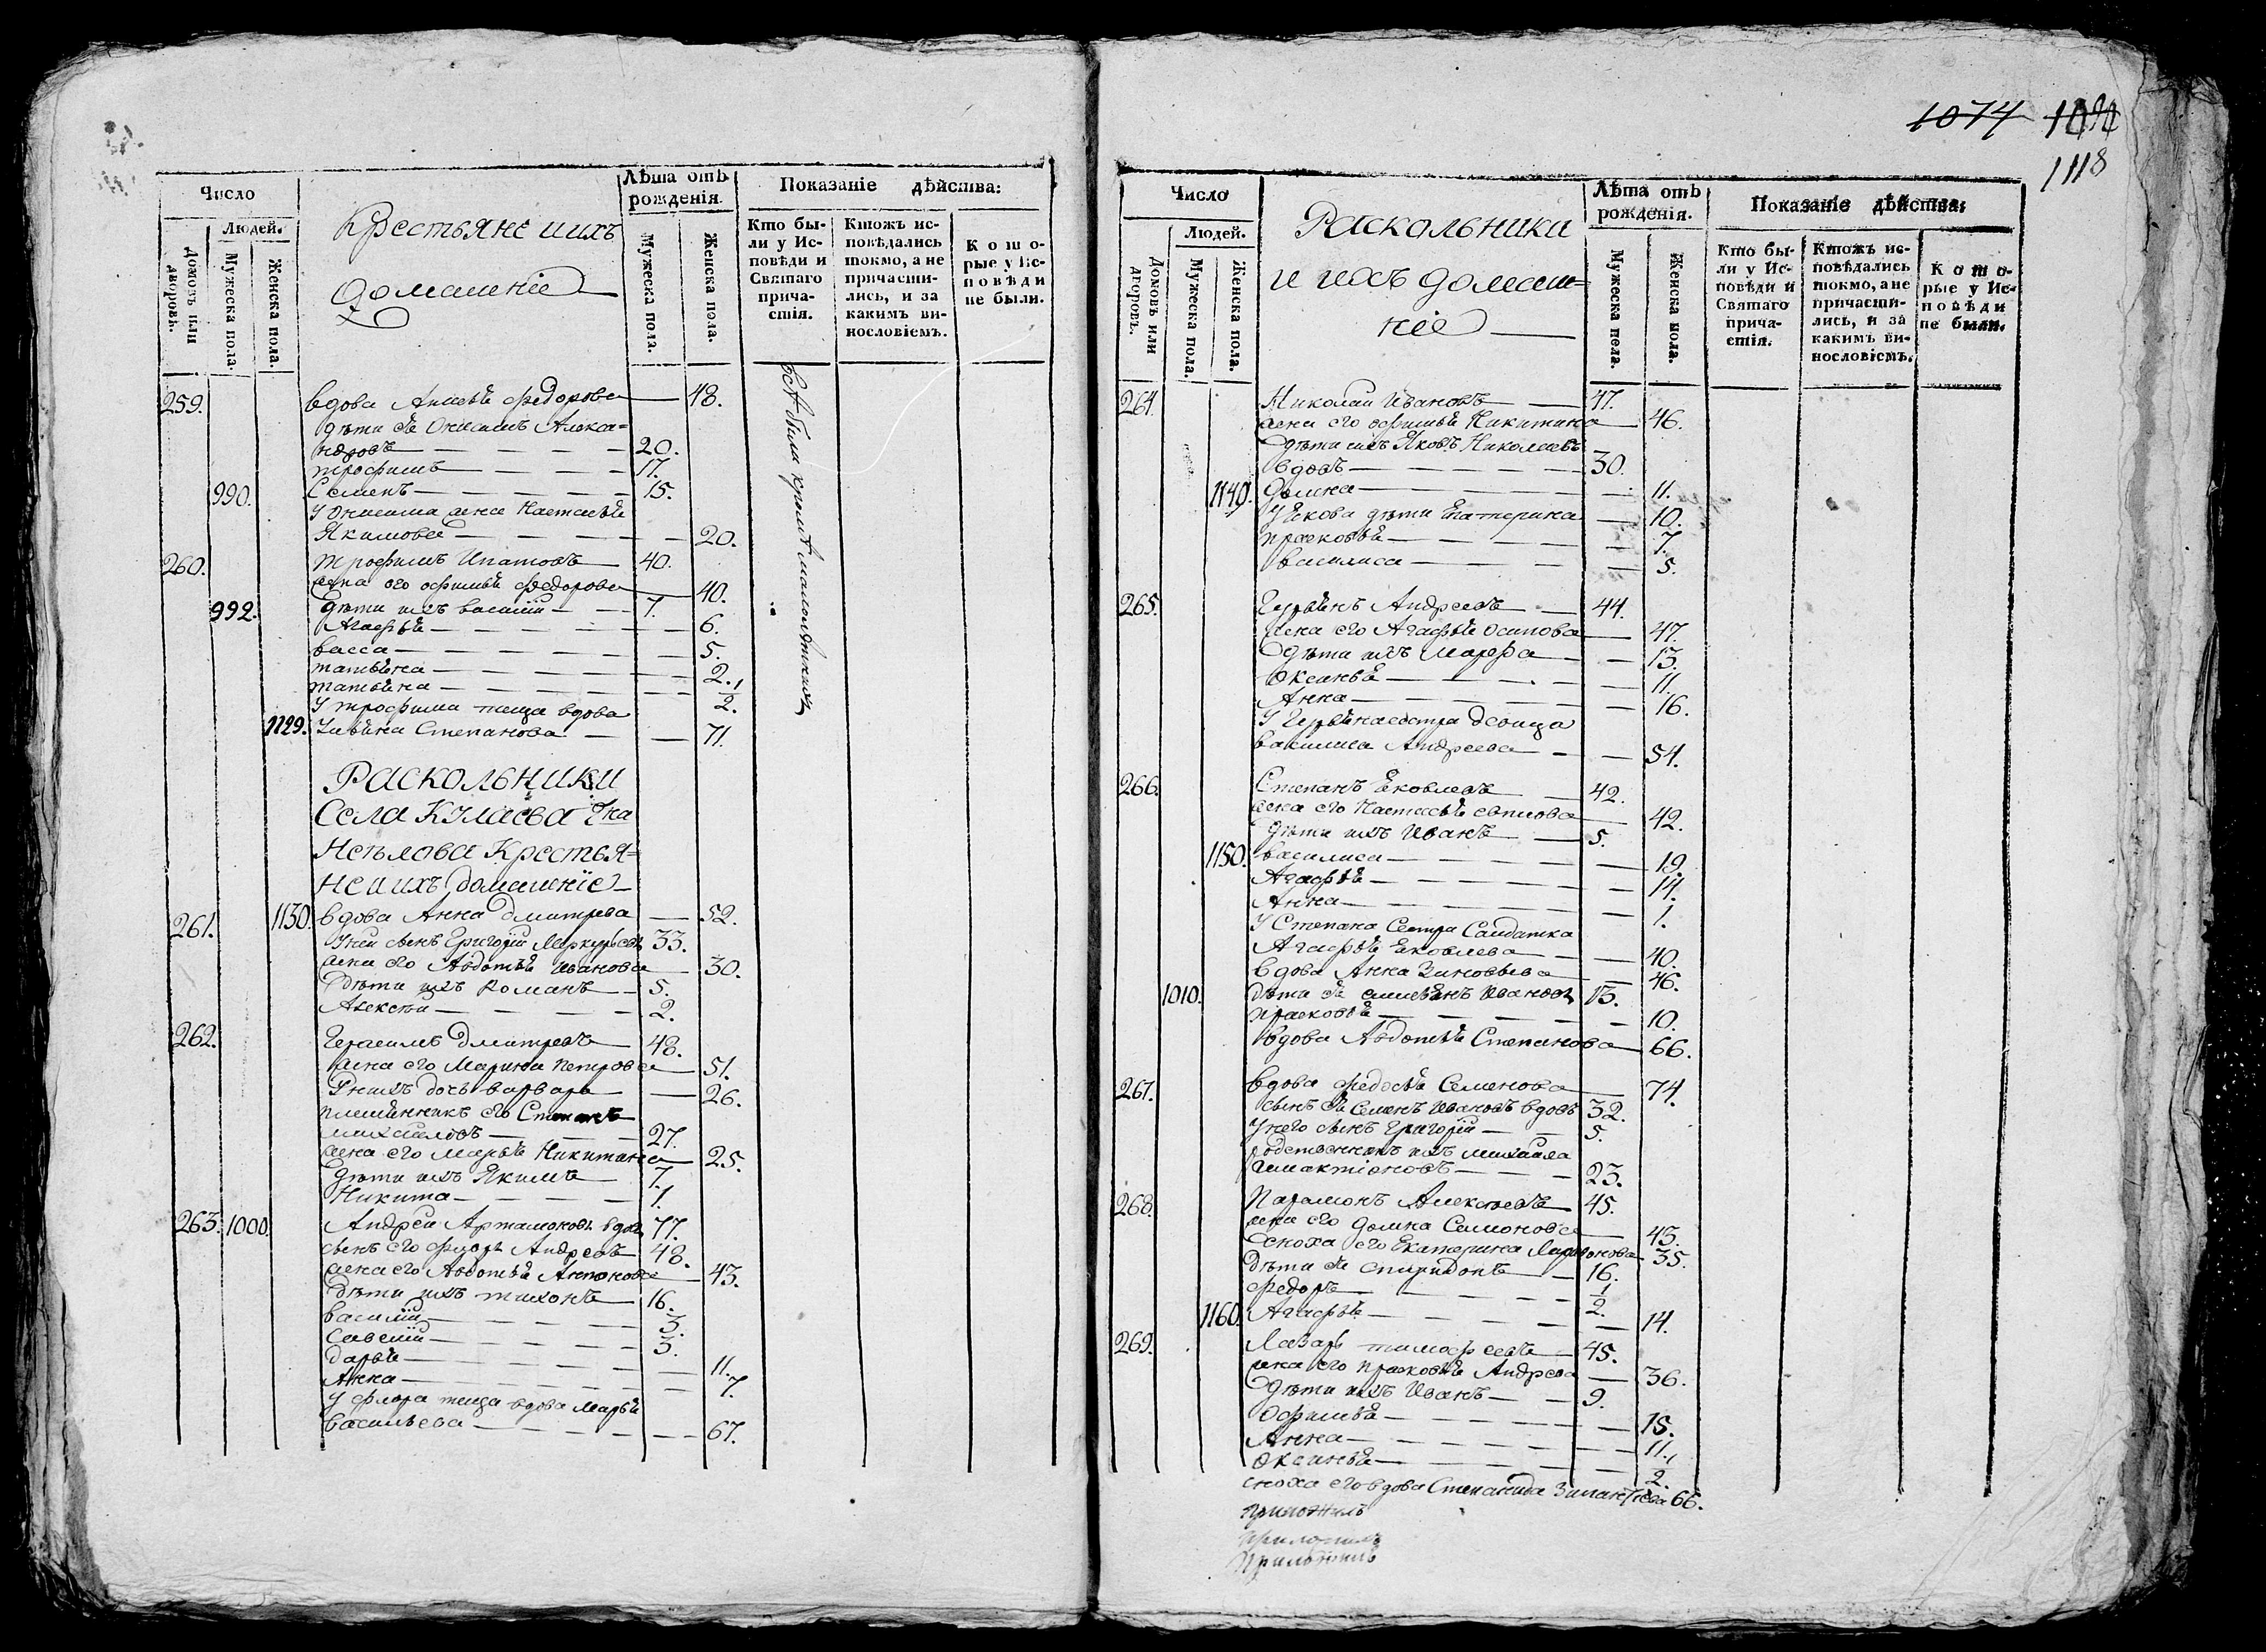 Число
Людей.
Домовъ или дворовъ.
Мужеска пола.
Женска пола.
Крестьяне иихъ
Домашніе
Лѣта отъ рожденія.
Мужеска пола.
Женска пола.
Показаніе дѣйства:
Кто были у Исповѣди и Святаго причастія.
Ктожъ исповѣдались токмо, а не причастились, и за какимъ винословіемъ.
Которые у Исповѣди не были.
всѣ были кромѣ малолѣтныхъ
259. вдова Анисья федорова — 48.
дѣти ея Онисимъ Алекса=
ндровъ — 20.
трофимъ — 17.
990. Семенъ — 15.
У Онисима жена Настасья
Якимова — 20.
260. трофимъ Ипатовъ — 40.
жена его офимья федорова — 40.
992. дѣти ихъ василій — 7.
Агафья — 6.
васса — 5.
татьяна — 2.
татьяна — 1/2.
У трофима теща вдова
1129. Ульяна Степанова — 71.
Раскольники
Села Кулаева
Неѣлова Крестья=
не иихъ домашніе
261. 1130. вдова Анна дмитрева — 52.
Уней сынъ Григорій Меркурьевъ 33.
жена его Авдотья Иванова — 30.
Дѣти ихъ Романъ — 5.
Алексѣй — 2.
262. Герасимъ Дмитревъ — 48.
жена его Марина петрова — 51.
Унихъ дочь варвара — 26.
племянникъ его Степанъ
михайловъ — 27.
жена его марья Никитина — 25.
дѣти ихъ Якимъ — 7.
Никита — 1.
263. 1000. Андрей Артамоновъ вдовъ 77.
сынъ его флоръ Андреевъ 48.
жена его Авдотья Антонова — 43.
Дѣти ихъ тихонъ — 16.
василій — 3.
савелій — 3.
дарья — 11.
Анна — 7.
У флора теща вдова марья
васильева — 67.
1074
1118
Число
Людей.
Домовъ или дворовъ.
Мужеска пола.
Женска пола.
Раскольники
и ихъ домаш=
ніе
Лѣта отъ рожденія.
Мужеска пола.
Женска пола.
Показаніе дѣйства:
Кто были у Исповѣди и Святаго причастія.
Ктожъ исповѣдались токмо, а не причастились, и за какимъ винословіемъ.
Которые у Исповѣди не были.
264. Николай Ивановъ — 47.
жена его офимья Никитина — 46.
Дѣти ихъ Яковъ Николаевъ
вдовъ — 30.
1140. Домна — 11.
У Якова дѣти Екатерина — 10.
прасковья — 7.
василиса — 5.
265. Гурьянъ Андреевъ — 44.
жена его Агафья осипова — 47.
Дѣти ихъ марфа — 13.
Оксинья — 11.
Анна — 16.
У Гурьяна сестра девица
василиса Андреева — 54.
266. Степанъ Яковлевъ — 42.
жена его Настасья — 42.
дѣти ихъ Иванъ — 5.
1150. василиса — 19.
Агафья — 14.
Анна — 1.
У Степана Сестра Салдатка
Агафья Яковлева — 40.
вдова Анна Зиновьева — 46.
1010. дѣти ея Иванов 13.
прасковья — 10.
вдова Авдотья Степанова — 66.
267. вдова федосья Семенова — 74.
сынъ ея Семенъ Ивановъ вдовъ 32.
Унего сынъ Григорій — 5.
родственникъ ихъ михайла
— 23.
268. Парамонъ Алексѣевъ — 45.
жена его домна Семионова — 43.
Сноха его Екатерина — 35.
Дѣти ея спиридонъ — 16.
федоръ — 1/2.
1160. Агафья — 14.
269. Лазарь тимофеевъ — 45.
жена его прасковья Андреева — 36.
Дѣти ихъ Иванъ — 9.
Офимья — 15.
Анна — 11.
Оксинья — 1/2.
сноха его вдова Степанида 66.
приложилъ
приложилъ
приложилъ